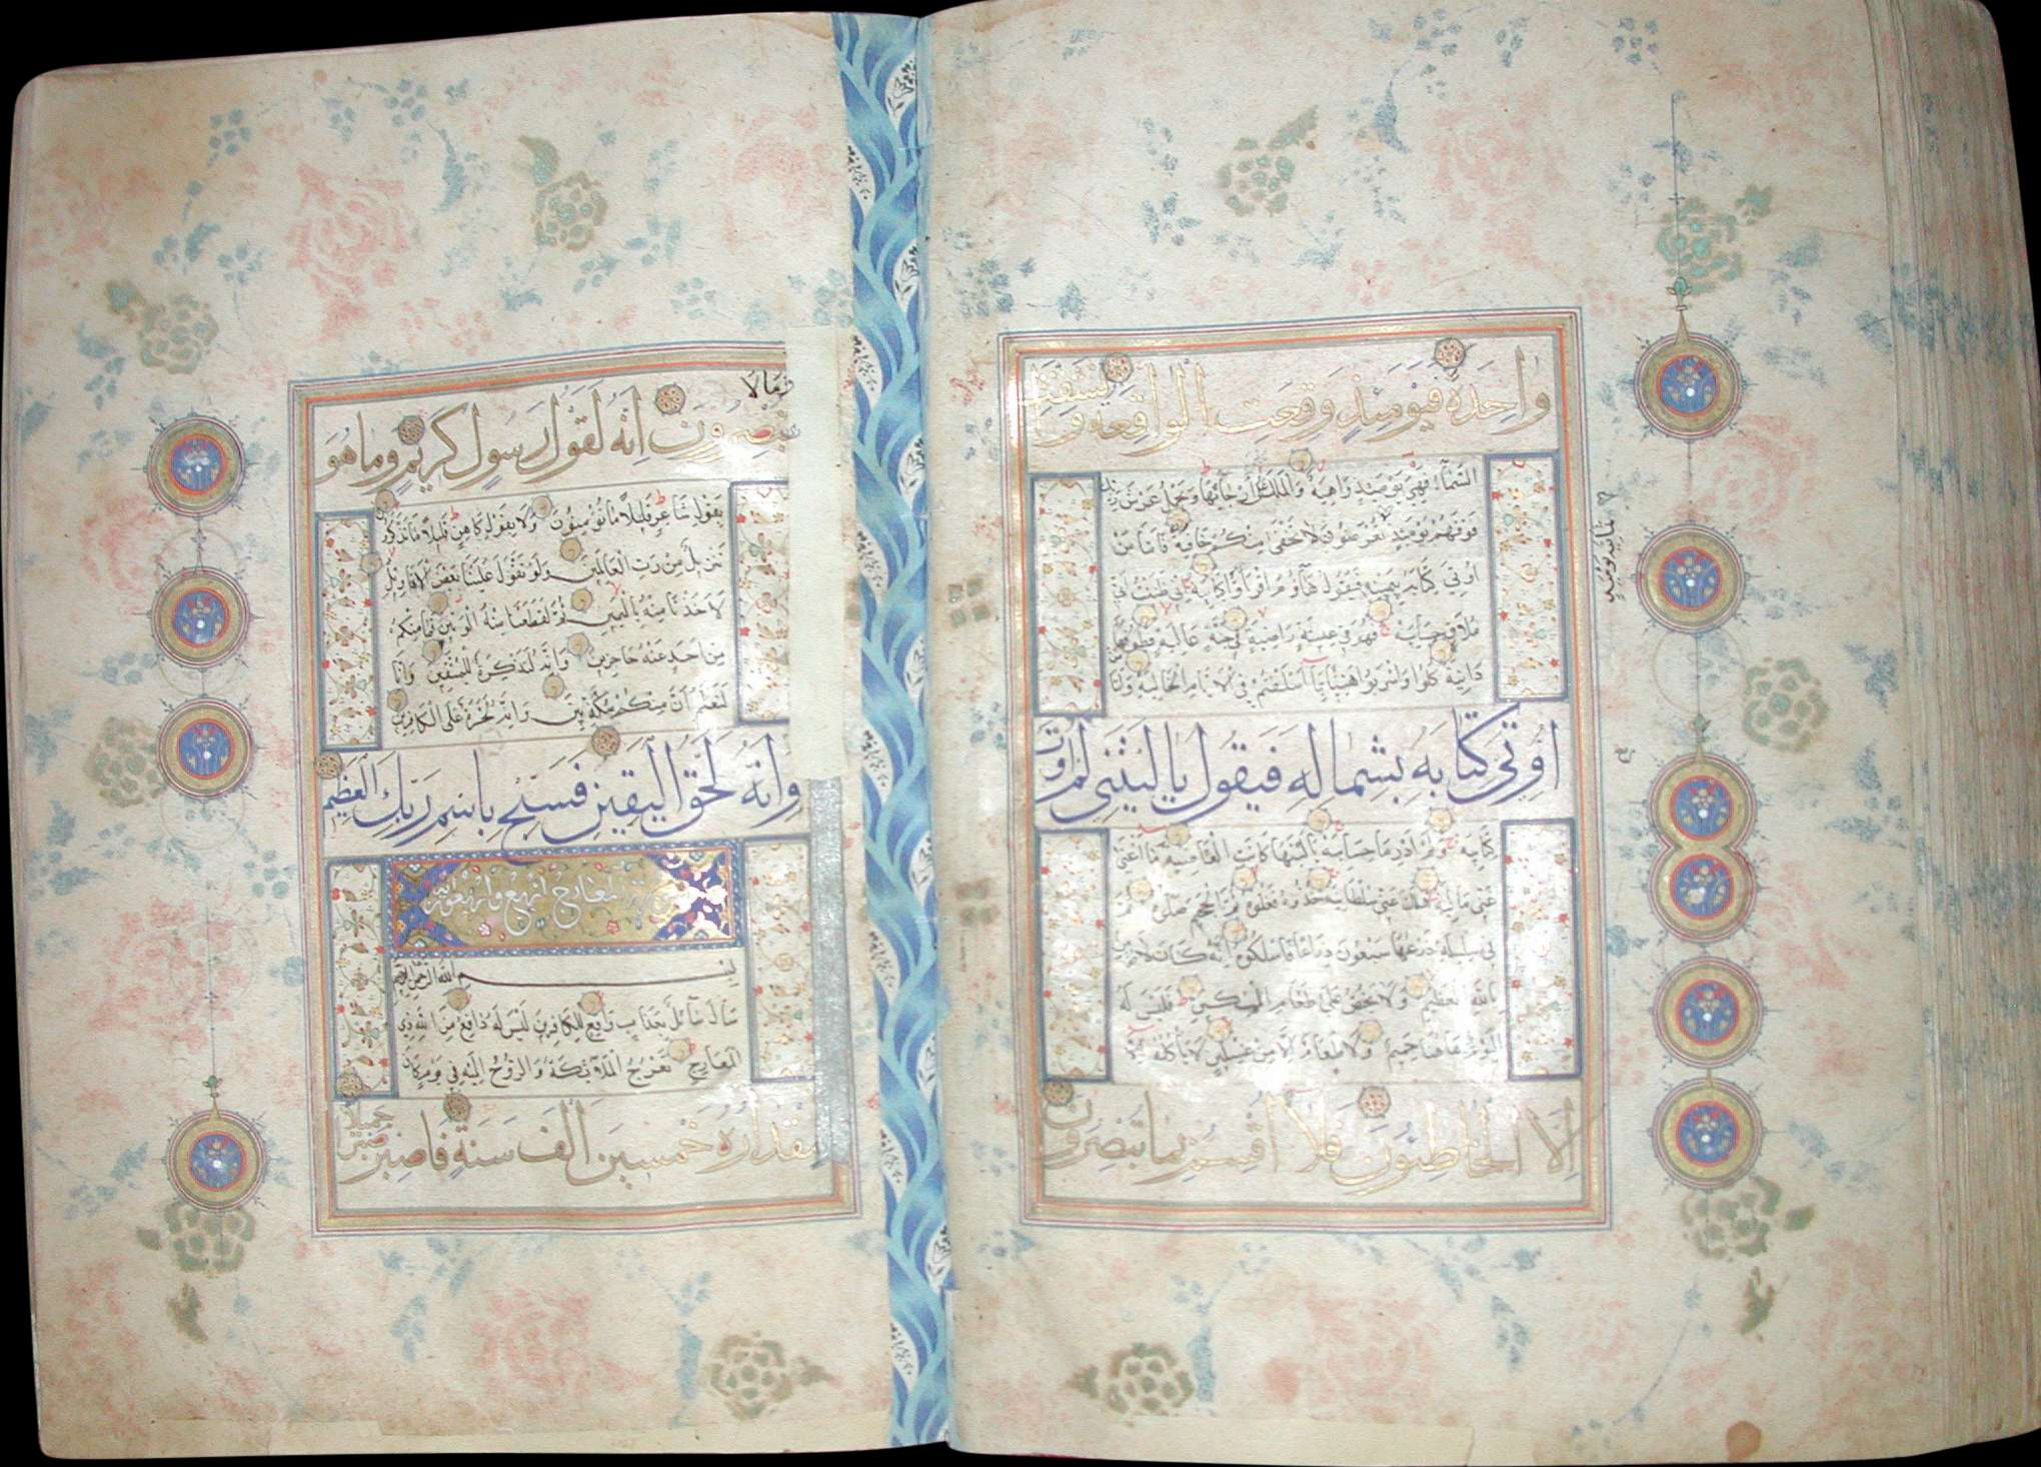 واحدة فيومئذ وقعت الواقعة وانشقت
السماء فهي يومئذ واهية والملك على أرجائها ويحمل عرش ربك
فوقهم يومئذ تعرضون لا تخفى منكم خافية فاما من
اوتي كتابه بيمينه فيقول هاؤم اقرؤا كتابيه اني ظننت اني
ملاق حسابيه فهو في عيشة راضية في جنة عالية قطوفها
دانية كلوا واشربوا هنيئا بما اسلفتم في الايام الخالية واما
اوتي كتابه بشماله فيقول ياليتني لم اوت
كتابيه ولم ادر ما حسابيه ياليتها كانت القاضية ما اغنى
عني ماليه هلك عني سلطانيه خذوه فغلوه ثم الجحيم صلوه ثم
في سلسلة ذرعها سبعون ذراعا فاسلكوه انه كان لا يؤمن
بالله العظيم ولا يحض على طعام المسكين فليس له
اليوم هاهنا حميم ولا طعام الا من غسلين لا يأكله
الا الخاطئون فلا اقسم بما تبصرون
ثمانية يومئذ
ومالا
تبصرون انه لقول رسول كريم وما هو
بقول شاعر قليلا ما تؤمنون ولا بقول كاهن قليلا ما تذكرون
تنزيل من رب العالمين ولو تقول علينا بعض الاقاويل
لاخذنا منه باليمين ثم لقطعنا منه الوتين فما منكم
من احد عنه حاجزين وانه لتذكرة للمتقين وانا
لنعلم ان منكم مكذبين وانه لحسرة على الكافرين
وانه لحق اليقين فسبح باسم ربك العظيم
المعارج اربع واربعون اية
بسم الله الرحمن الرحيم
سأل سائل بعذاب واقع للكافرين ليس له دافع من الله ذي
المعارج تعرج الملائكة والروح اليه في يوم كان
مقداره خمسين الف سنة فاصبر صبرا جميلا